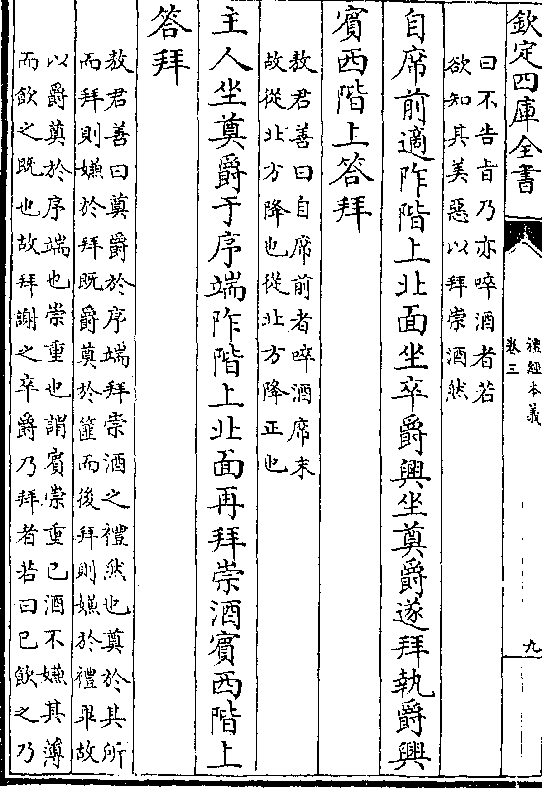 欽定四庫全書
禮經本義
卷三
九
曰不告旨乃亦啐酒者若
欲知其美惡以拜崇酒然
自席前適阼階上北面坐卒爵興坐奠爵遂拜執爵興
賓西階上答拜
敖君善曰自席前者啐酒席末
故從北方降也從北方降正也
主人坐奠爵于序端阼階上北面再拜崇酒賓西階上
答拜
敖君善曰奠爵於序端拜崇酒之禮然也奠於其所
而拜則嫌於拜既爵奠於篚而後拜則嫌於禮畢故
以爵奠於序端也崇重也謂賓崇重己酒不嫌其薄
而飲之既也故拜謝之卒爵乃拜者若曰已飲之乃